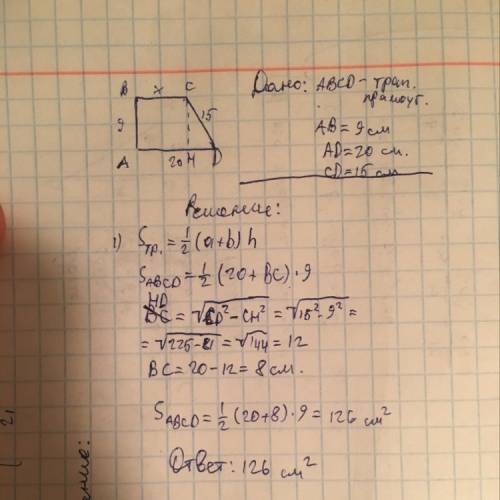 B x C
9
15
A 20 H D
Дано: ABCD – трап.
прямоуг.
AB = 9 см
AD = 20 см.
CD = 15 см
Решение:
1) Sтр. = 1/2 (a+b) h
SABCD = 1/2 (20 + BC) · 9
HD = √CD² – CH² = √15² – 9² =
= √225 – 81 = √144 = 12
BC = 20 – 12 = 8 см.
SABCD = 1/2 (20+8) · 9 = 126 см²
Ответ: 126 см²